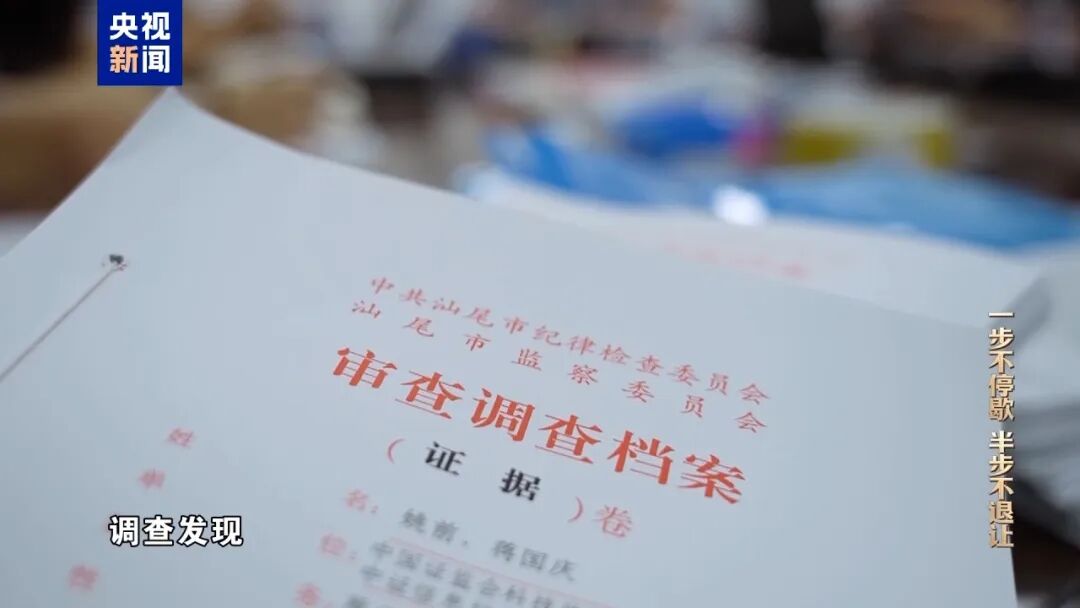 央视
新闻
中共汕尾市纪律检查委员会
汕尾市监察委员会
审查调查档案
(证据)卷
姓名：姚前，蒋国庆
单位：中国证监会科技
中证信息
务：
调查发现
一步不停歇 半步不退让